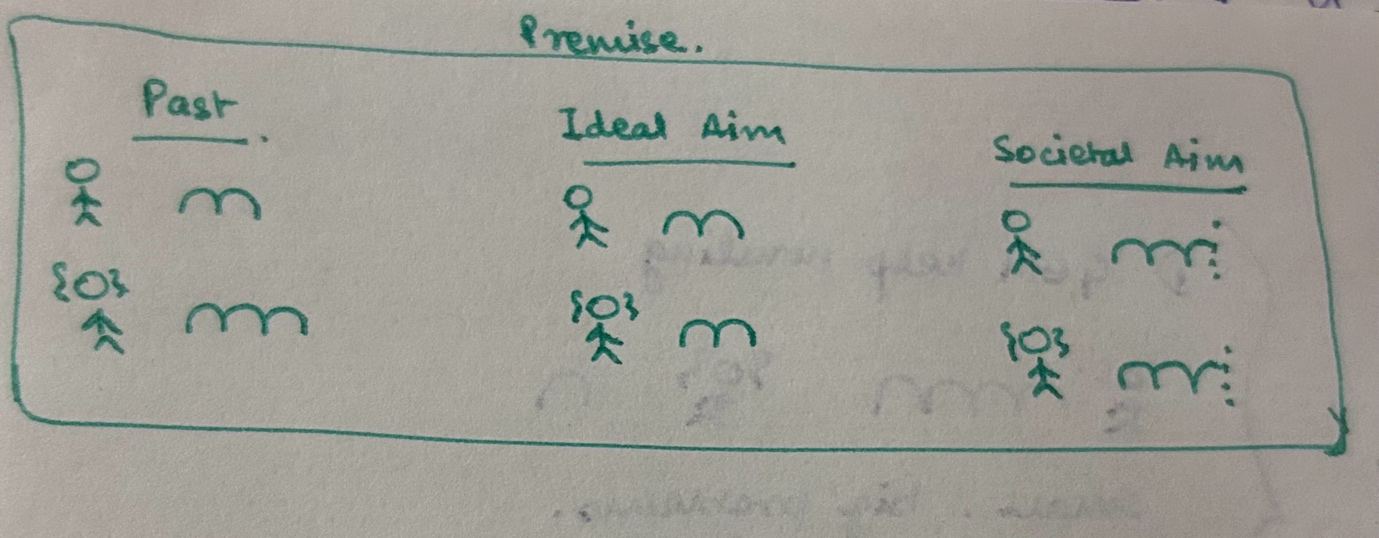 Premise.
Past.
Ideal Aim
Societal Aim